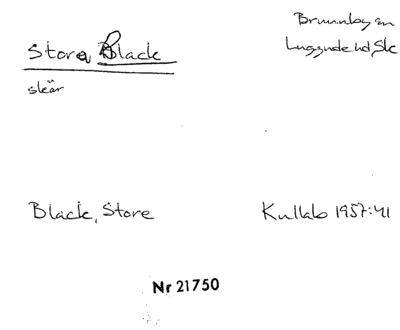 Brunnby sn
Stora Black
Luggude hd Sk
skär
Black, Store
Kullab 1957:41
Nr 21750